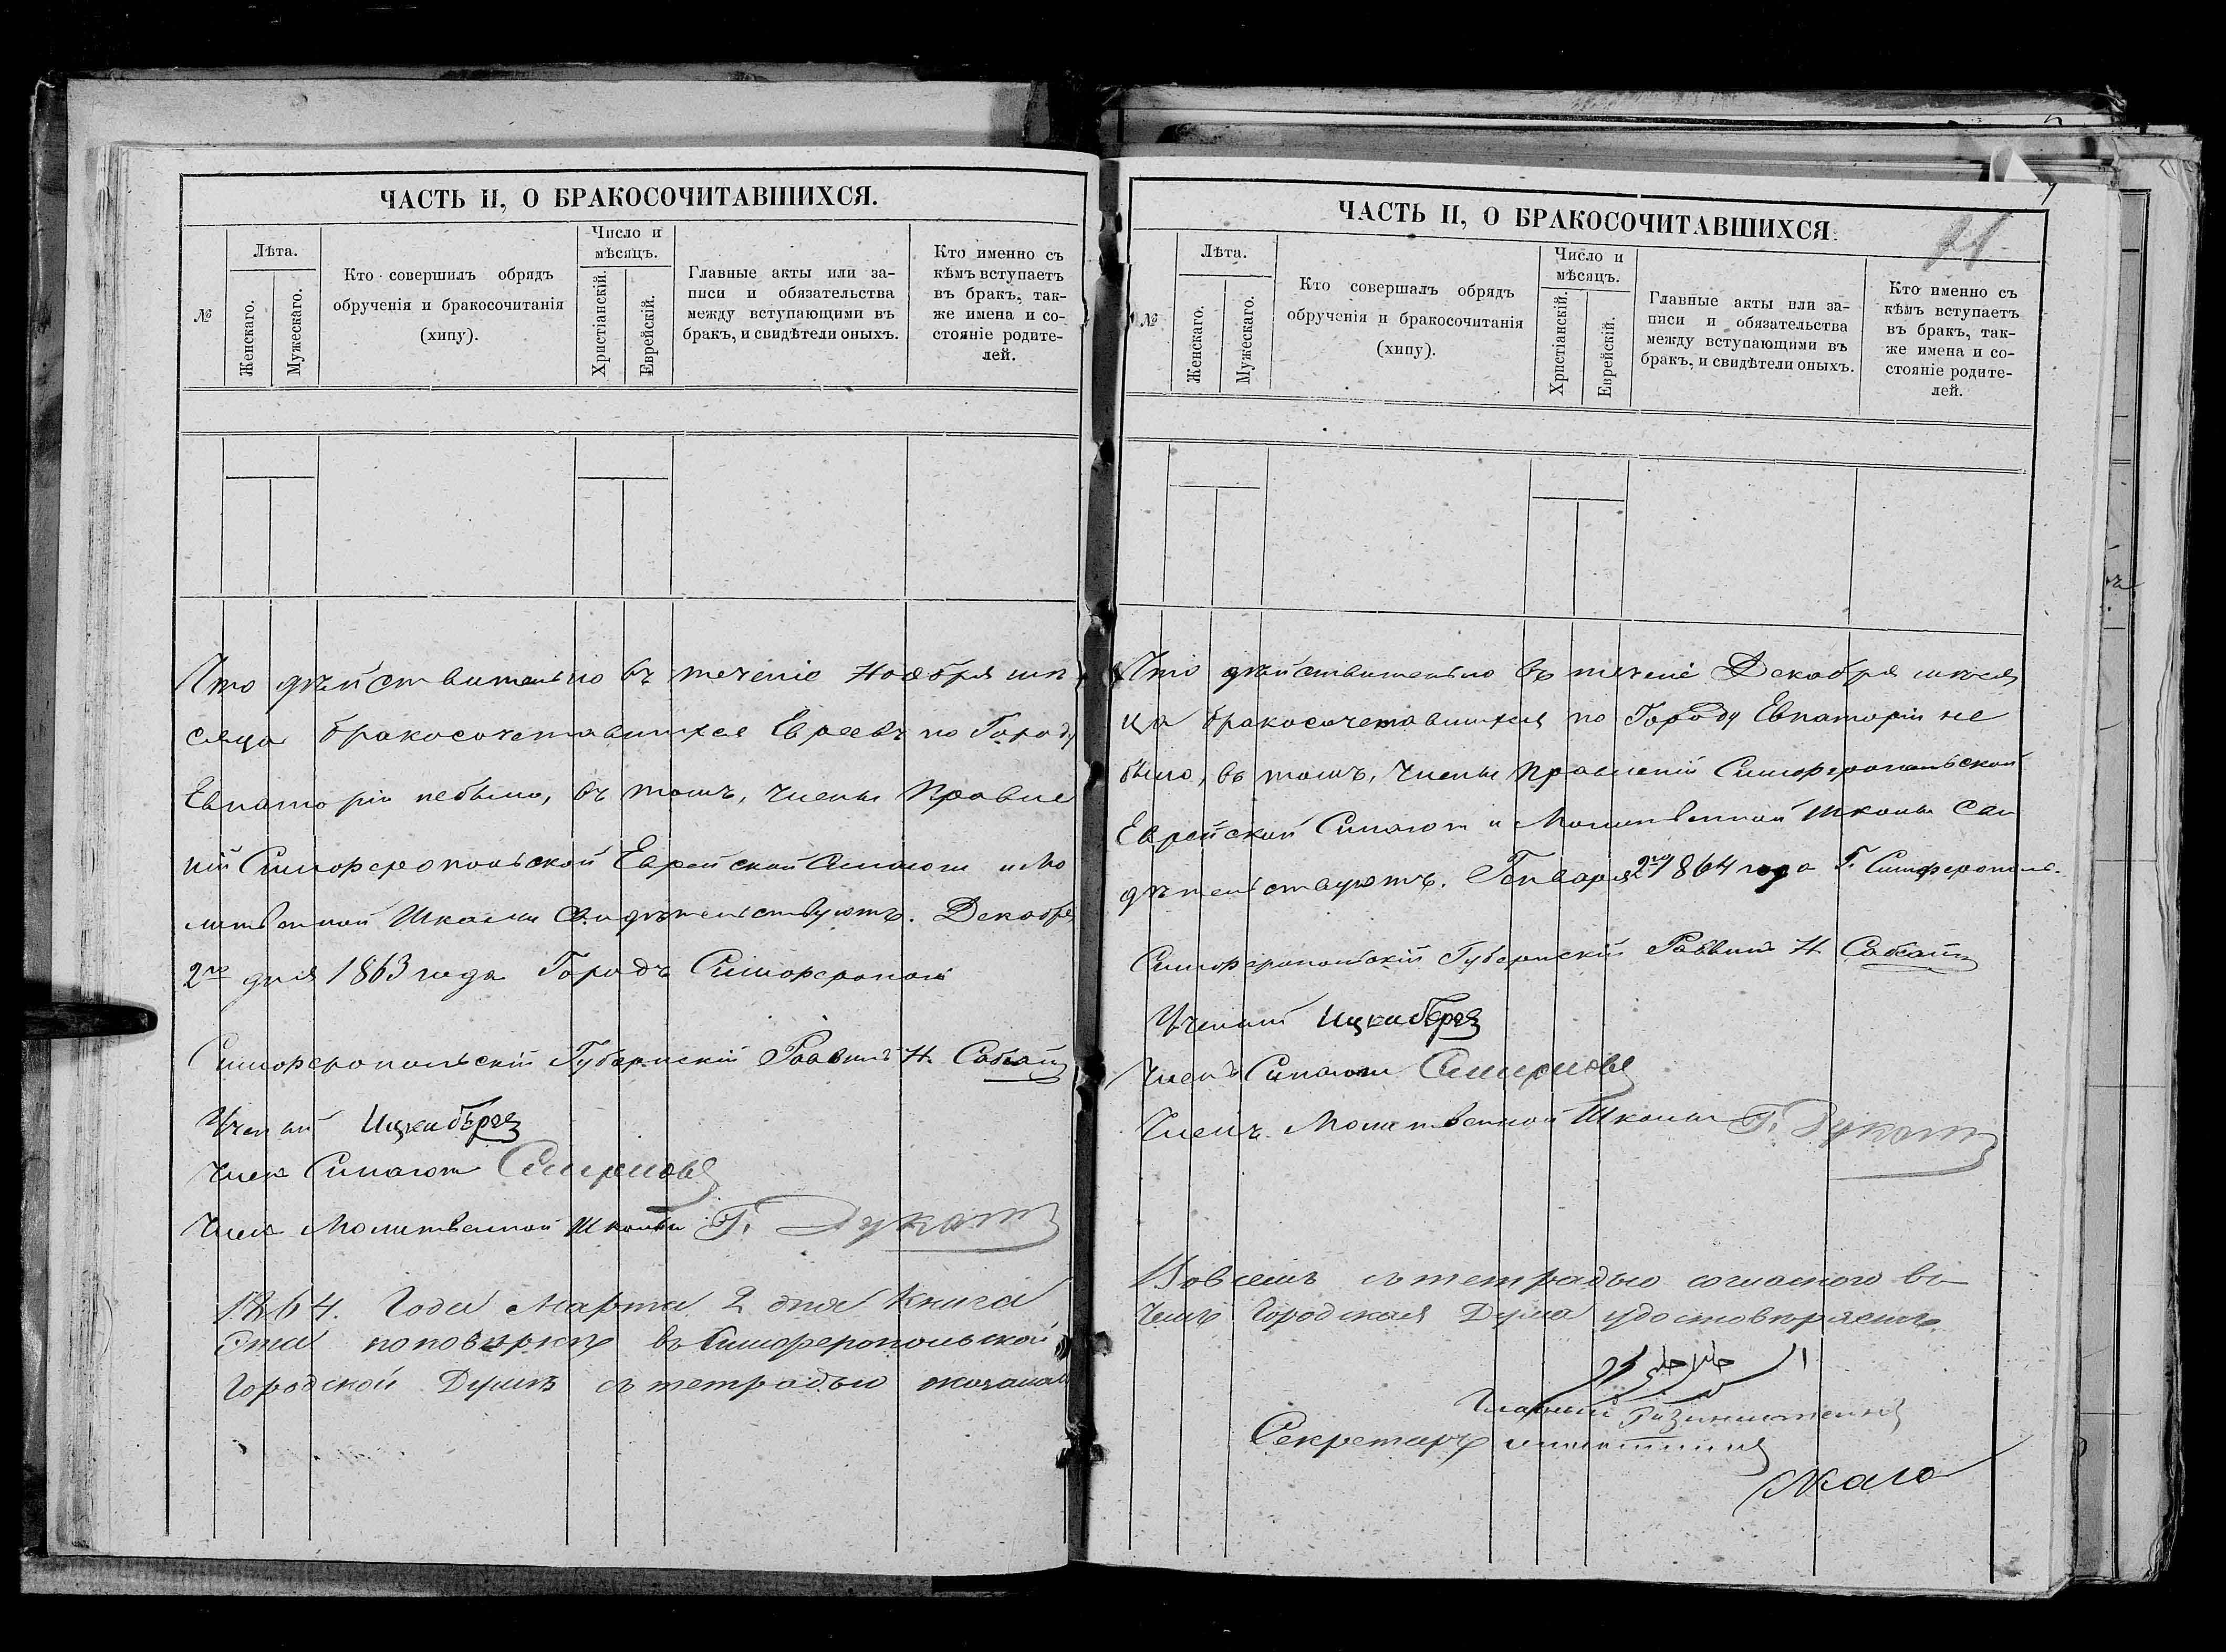 ЧАСТЬ II, О БРАКОСОЧИТАВШИХСЯ.
№
Лѣта.
Женскаго.
Мужескаго.
Кто совершилъ обрядъ
обрученія и бракосочитанія
(хипу).
Число и
мѣсяцъ.
Христіанскій.
Еврейскій.
Главные акты или за-
писи и обязательства
между вступающими въ
бракъ, и свидѣтели оныхъ.
Кто именно съ
кѣмъ вступаетъ
въ бракъ, так-
же имена и со-
стояніе родите-
лей.
Что дѣйствительно въ теченіе Ноября мѣ
сяца бракосочетавшихся Евреевъ по Городу
Евпаторіи небыло, въ томъ, Члены Правле
ній Симферопольской Еврейской Синагоги и Мо
литвенной Школы Свидѣтельствуютъ. Декабря
2го дня 1863 года Городъ Симферополь
Симферопольскій Губернскій Раввинъ Н.
Ученый
Членъ Синагоги
Членъ Молитвенной Школы Г. Дукатъ
1864. Года Марта 2 дня Книга
Эта по повѣркѣ въ Симферопольской
Городской Думѣ съ тетрадью оказалась
ЧАСТЬ II, О БРАКОСОЧИТАВШИХСЯ.
№
Лѣта.
Женскаго.
Мужескаго.
Кто совершалъ обрядъ
обрученія и бракосочитанія
(хипу).
Число и
мѣсяцъ.
Христіанскій.
Еврейскій.
Главные акты или за-
писи и обязательства
между вступающими въ
бракъ, и свидѣтели оныхъ.
Кто именно съ
кѣмъ вступаетъ
въ бракъ, так-
же имена и со-
стояніе родите-
лей.
Что дѣйствительно въ теченіе Декабря мѣся
ца бракосочетавшихся по Городу Евпаторіи не
было, въ томъ, Члены Правленій Симферопольской
Еврейской Синагоги и Молитвенной Школы Сви
дѣтельствуютъ. Генваря 2го 1864 года Г. Симферополь.
Симферопольскій Губернскій Раввинъ Н.
Ученый
Членъ Синагоги
Членъ Молитвенной Школы Г. Дукатъ
Во всемъ съ тетрадью согласною въ
чемъ Городская Дума удостовѣряетъ
Гласный
Секретарь